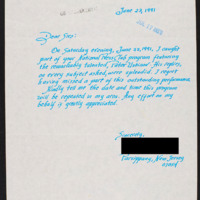 June 27, 1991
Dear Sirs:
On Saturday evening, June 22, 1991, I caught
part of your National Press Club program featuring
the remarkably talented, His replies,
on every subject asked, were splendid. I regret
having missed a part of this outstanding performance.
Kindly tell me the date and time this program
will be repeated in my area. Any effort on my
behalf is greatly appreciated.
Sincerely,
Parsippany, New Jersey
07054